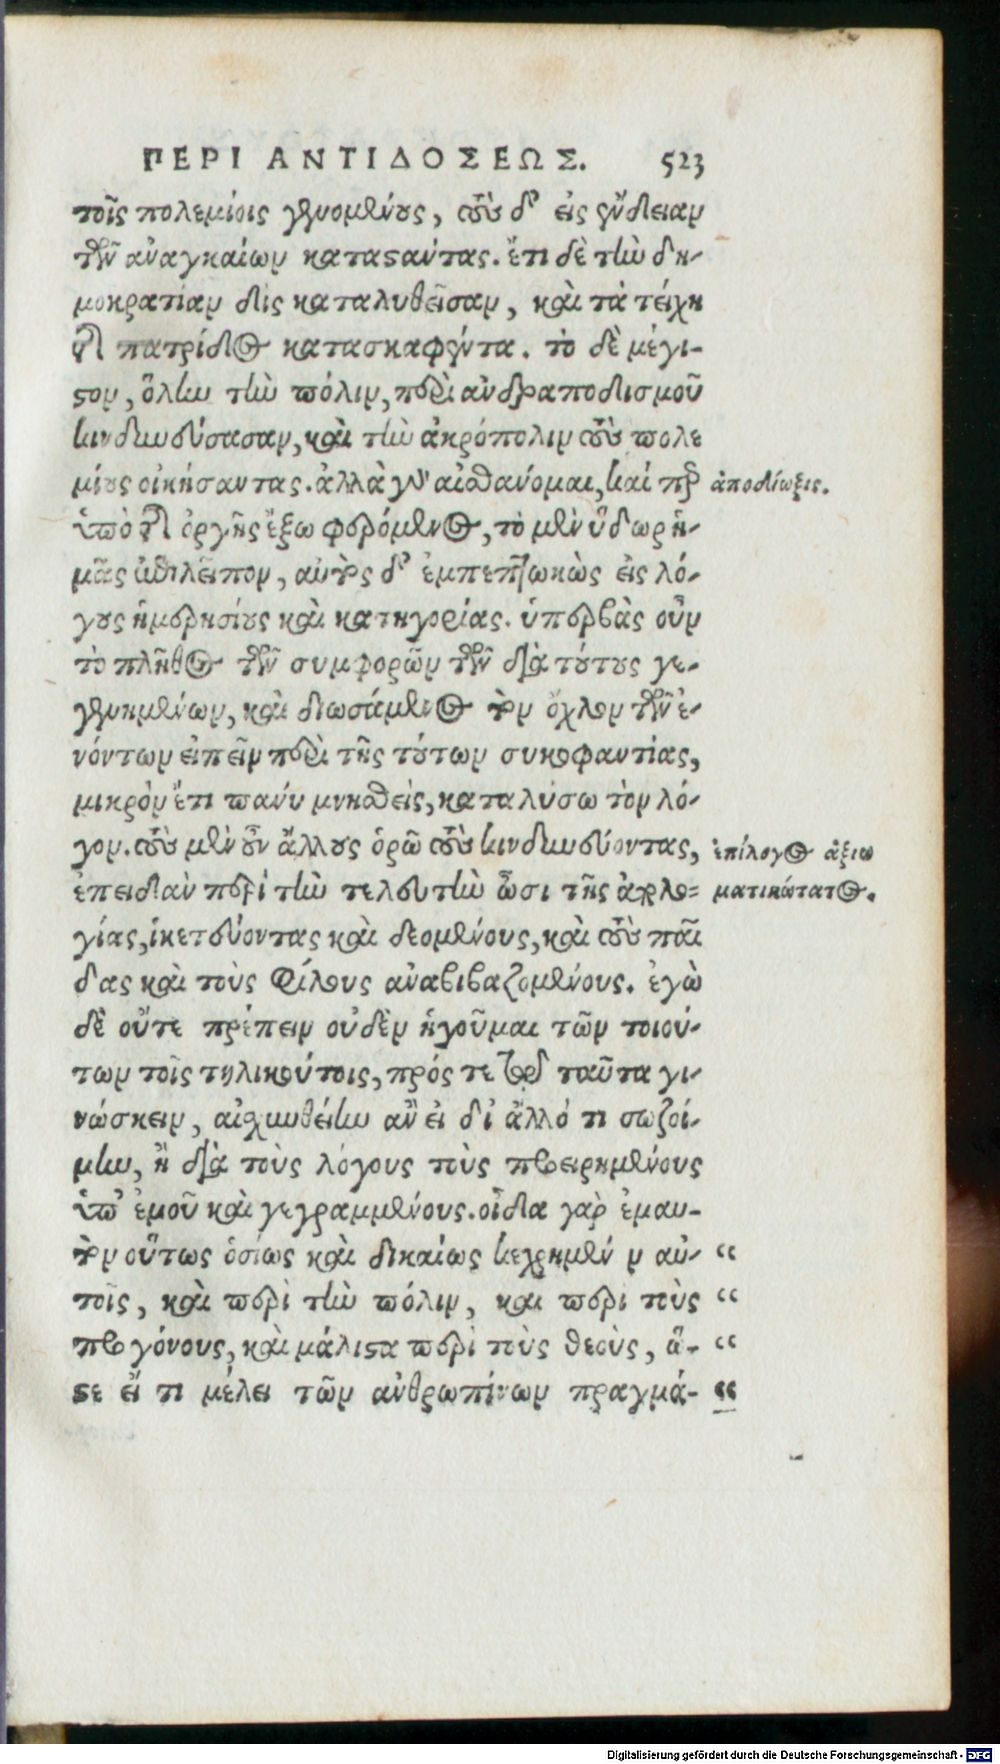 ΠΕΡΙ ΑΝΤΙΔΟΣΕΩΣ. 523
τοῖς πολεμίοις γενομένους, τοὺς δ' εἰς ἔνδειαν
τῶν ἀναγκαίων καταστάντας. ἔτι δὲ τὴν δη-
μοκρατίαν δὶς καταλυθεῖσαν, καὶ τὰ τείχη
τῆς πατρίδος κατασκαφέντα. τὸ δὲ μέγι-
στον, ὅλην τὴν πόλιν, περὶ ἀνδραποδισμοῦ
κινδυνεύσασαν, καὶ τὴν ἀκρόπολιν τοὺς πολε
μίους οἰκήσαντας. ἀλλὰ γὰρ αἰσθάνομαι, καίπερ
ἀποδίωξις.
ὑπὸ τῆς ὀργῆς ἔξω φερόμενος, τὸ μὲν ὕδωρ ἡ-
μᾶς ἐπιλεῖπον, αὐτὸς δ' ἐμπεπτωκὼς εἰς λό-
γους ἡμερησίους καὶ κατηγορίας. ὑπερβὰς οὖν
τὸ πλῆθος τῶν συμφορῶν τῶν διὰ τούτους γε-
γενημένων, καὶ διωσάμενος τὸν ὄχλον τῶν ἐ-
νόντων εἰπεῖν περὶ τῆς τούτων συκοφαντίας,
μικρὸν ἔτι πάνυ μνησθεὶς, καταλύσω τὸν λό-
γον. τοὺς μὲν οὖν ἄλλους ὁρῶ τοὺς κινδυνεύοντας,
ἐπίλογος ἀξιω
ἐπειδὰν περὶ τὴν τελευτὴν ὦσι τῆς ἀπολο-
ματικώτατος.
γίας, ἱκετεύοντας καὶ δεομένους, καὶ τοὺς παῖ
δας καὶ τοὺς φίλους ἀναβιβαζομένους. ἐγὼ
δὲ οὔτε πρέπειν οὐδὲν ἡγοῦμαι τῶν τοιού-
των τοῖς τηλικούτοις, πρός τε τῷ ταῦτα γι-
νώσκειν, αἰσχυνθείην ἂν εἰ δι' ἄλλό τι σωζοί-
μην, ἢ διὰ τοὺς λόγους τοὺς προειρημένους
ὑπ' ἐμοῦ καὶ γεγραμμένους. οἶδα γὰρ ἐμαυ-
τὸν οὕτως ὁσίως καὶ δικαίως κεχρημέν ν αὐ- “
τοῖς, καὶ περὶ τὴν πόλιν, και περι τοὺς “
προγόνους, καὶ μάλιστα περὶ τοὺς θεοὺς, ὥ- “
στε εἴ τι μέλει τῶν ἀνθρωπίνων πραγμά- “
Digitalisierung gefördert durch die Deutsche Forschungsgemeinschaft - DFG